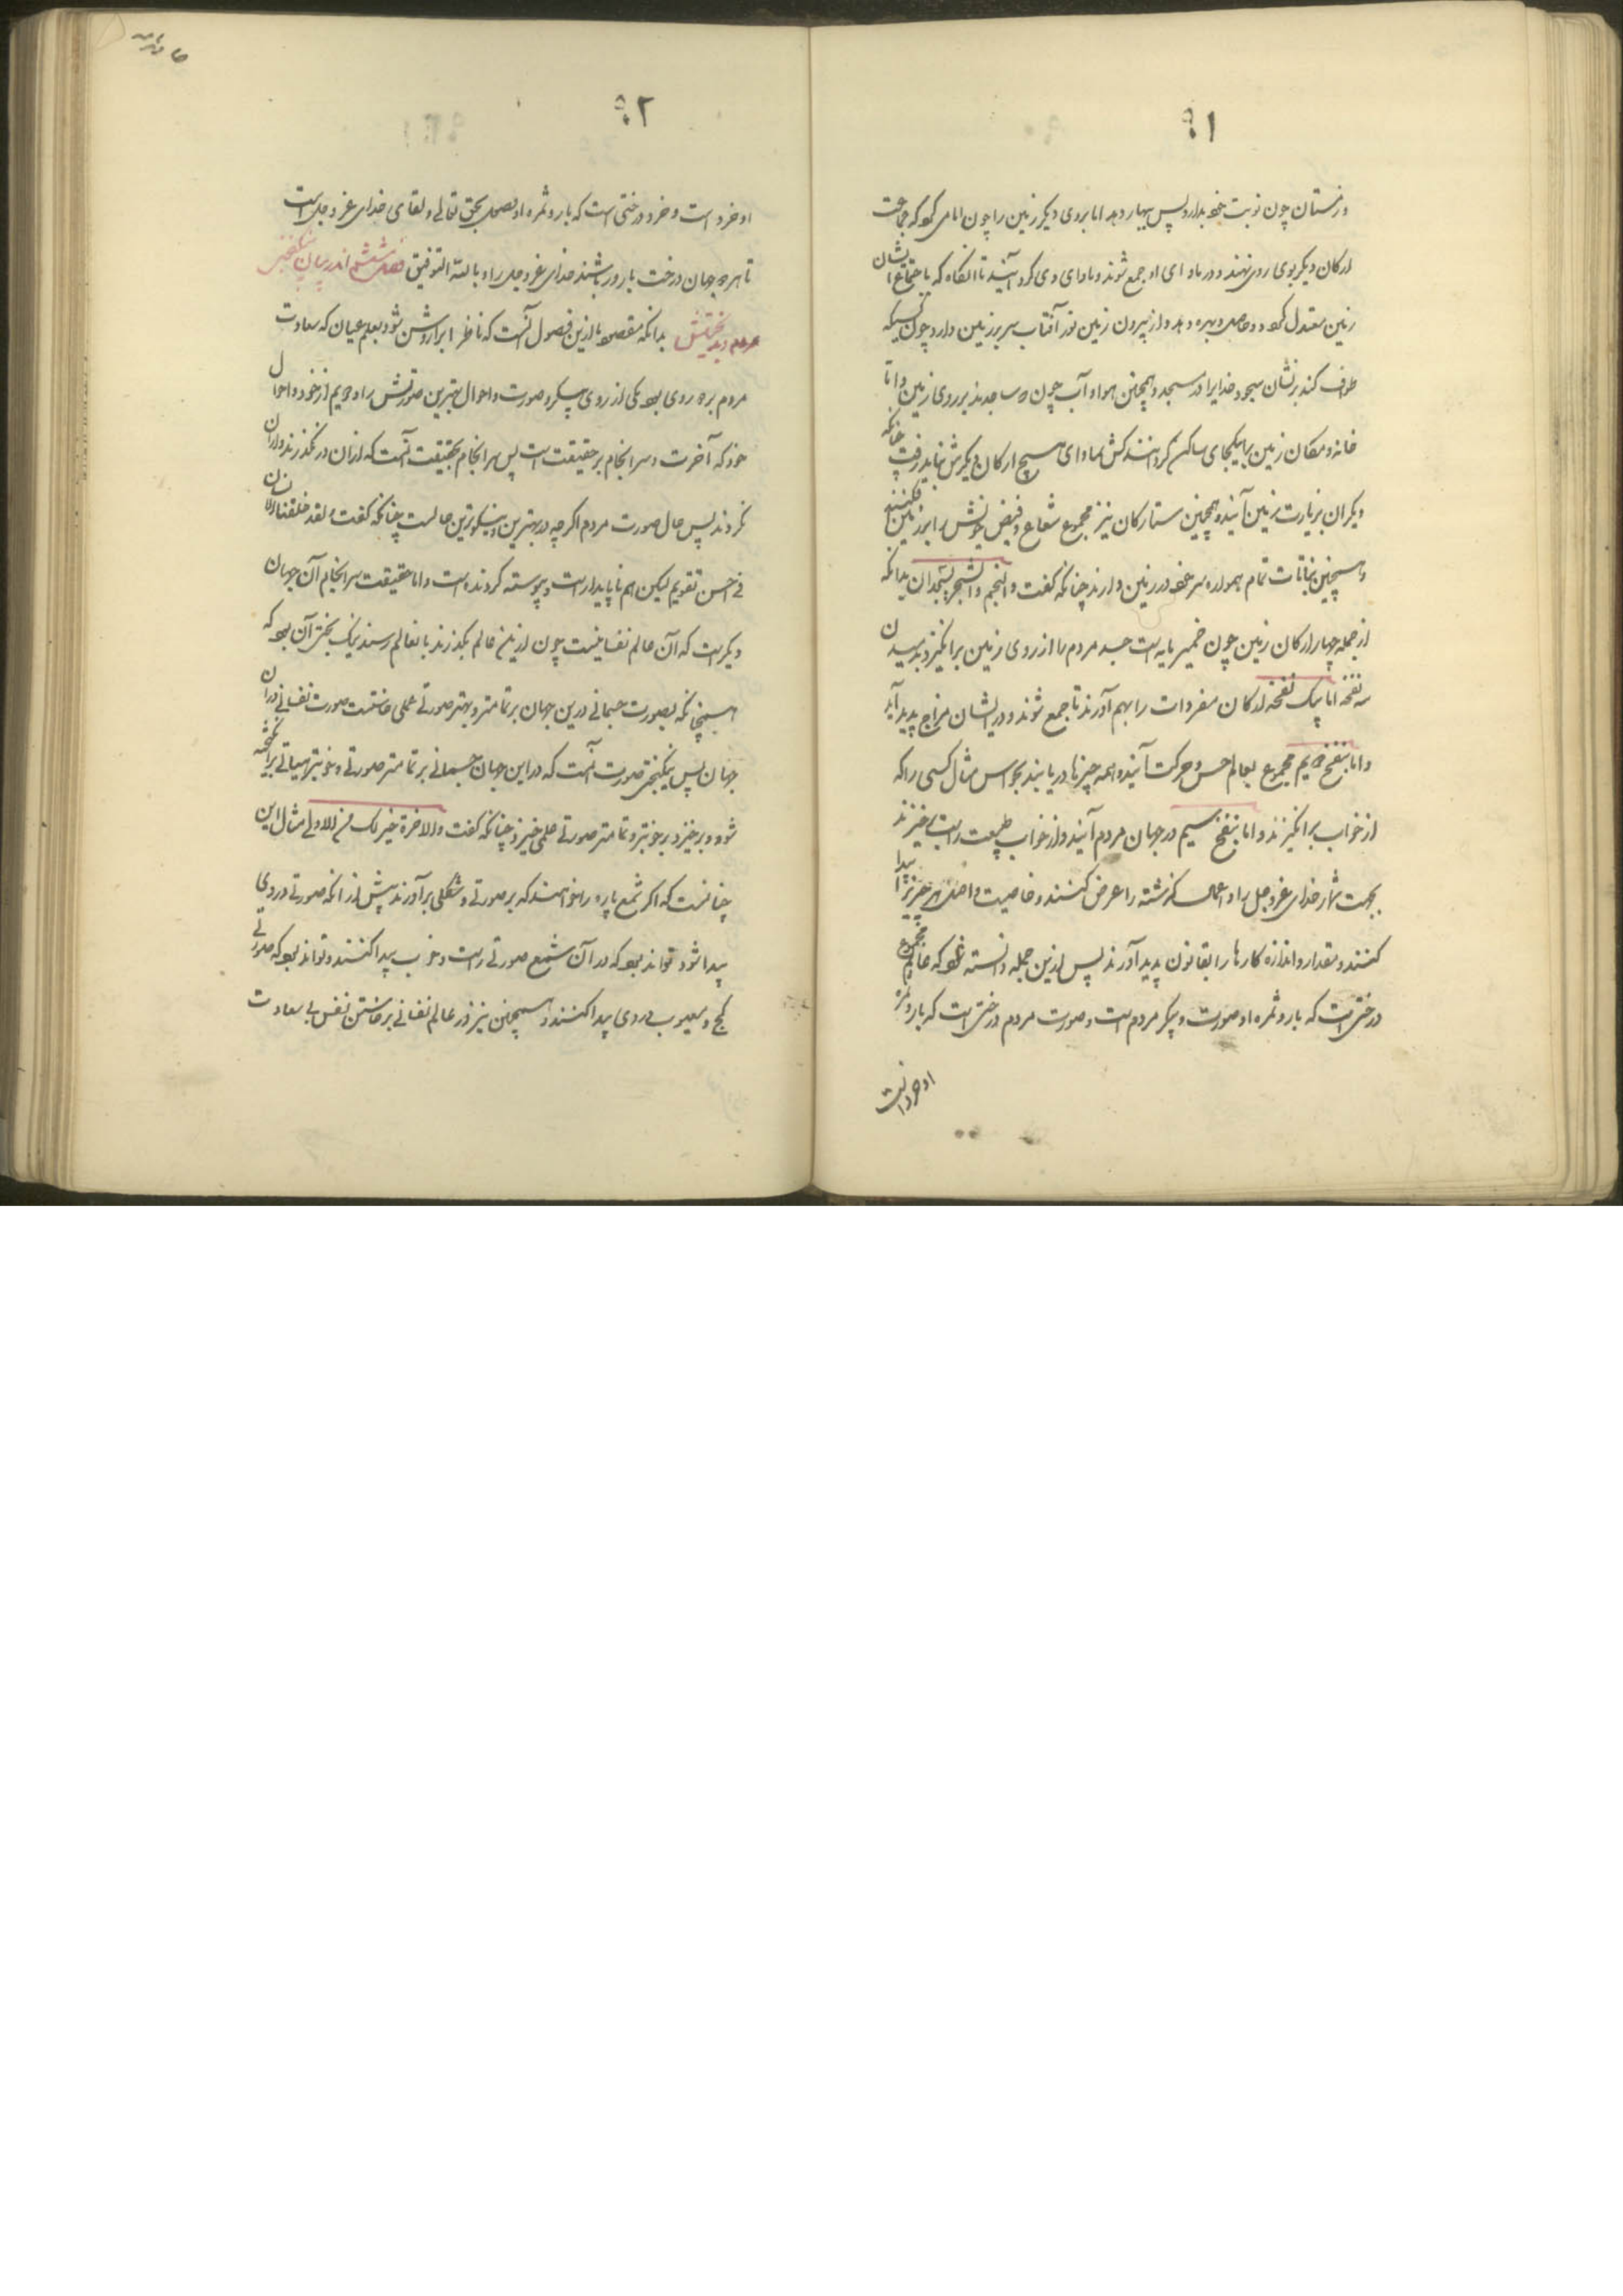 ۹۱
و زمستان چون نوبت خود بدارد پس ببهار دهد اما بروی دیگر زمین را چون امامی که جماعت
ارکان دیگر بوی روی نهند و در ماوای او جمع شوند و ماوای وی گرد آیند تا آنگاه که باجتماع ایشان
زمین معتدل گردد و حاصل و بهره دهد و از بیرون زمین نور آفتاب سر بر زمین دارد چون کسیکه
طواف کند بر نشان سجود خدایرا در مسجد و همچنین هوا و آب چون دو ساجدند بر روی زمین و اما
خانه و مکان زمین بر یکجای ساکن گردانند کش بماوای هیچ ارکان دیگرش نباید رفت چنانکه
دیگران بزیارت زمین آیند و همچنین ستارگان نیز مجموع شعاع و فیض خویش را بر زمین افکنند
و همچنین نباتات تمام همواره سر خود در زمین دارند چنانکه گفت والنجم والشجر یسجدان بدانکه
از جمله چهار ارکان زمین چون خمیر مایه است جسد مردم را از روی زمین برانگیزد بدمیدن
سه نفخه اما بیک نفخه ارکان مفردات را بهم آورند تا جمع شوند و در ایشان مزاج پدید آید
و اما بنفخ دویم مجموع بعالم حس و حرکت آیند و همه چیزها دریابند بحواس مثال کسی را که
از خواب برانگیزند و اما بنفخ سیم در جهان مردم آیند و از خواب طبیعت راست برخیزند
بجهت شمار خدای عز و جل را و اعمال گذشته را عرض کنند و خاصیت و اصل هر چیزی را پیدا
کنند و مقدار و اندازه کارها را بقانون پدید آورند پس ازین جمله دانسته شود که مجموع عالم
درختی است که بار و ثمره او صورت و پیکر مردم است و صورت مردم درختی است که بار و ثمره
او خرد است
۹۲
او خرد است و خرد درختی است که بار و ثمره او بصحل بحق تعالی و لقای خدای عز و جل است
تا هر دو جهان درخت بارور باشند خدای عز و جل را و بالله التوفیق فصل ششم اندر بیان نیکبختی
مردم و بدبختیش بدانکه مقصود ازین فصول آنست که ناظر ابرار روشن شود بعلم عیان که سعادت
مردم بر دو روی بود یکی از روی پیکر و صورت و احوال بهترین صورتش را و دویم از خرد و احوال
خود که آخرت و سرانجام بر حقیقت است پس سرانجام بحقیقت آنست که از آن در نگذرند و از آن
نگردند پس حال صورت مردم اگر چه در بهترین و نیکوترین حالست چنانکه گفت و لقد خلقنا الانسان
فی احسن تقویم لیکن هم ناپایدار است و پیوسته گردنده است و اما حقیقت سرانجام آن جهان
دیگر است که آن عالم نفسانیست چون ازین عالم بگذرند بانعالم رسند نیک بختر آن بود که
همچنانکه بصورت جسمانی درین جهان بر تمامتر و بهتر صورتی عملی خاستست صورت نفسانی در آن
جهان پس نیکبختی صورت آنست که در این جهان جسمانی بر تمامتر صورتی و خوبتر هیاتی برانگیخته
شود و برخیزد بر خوبتر و تمامتر صورتی علمی خیزد چنانکه گفت وللاخرة خیر لک من الاولی مثال این
چنانست که اگر شمع پاره را خواهند که بر صورتی و شکلی برآورند پیش از آنکه صورتی در وی
پیدا شود تواند بود که در آن شمع صورتی راست و خوب پیدا کنند و تواند بود که صورتی
کج و معیوب در وی پیدا کنند و همچنین نیز در عالم نفسانی برخاستن نفس بی سعادت